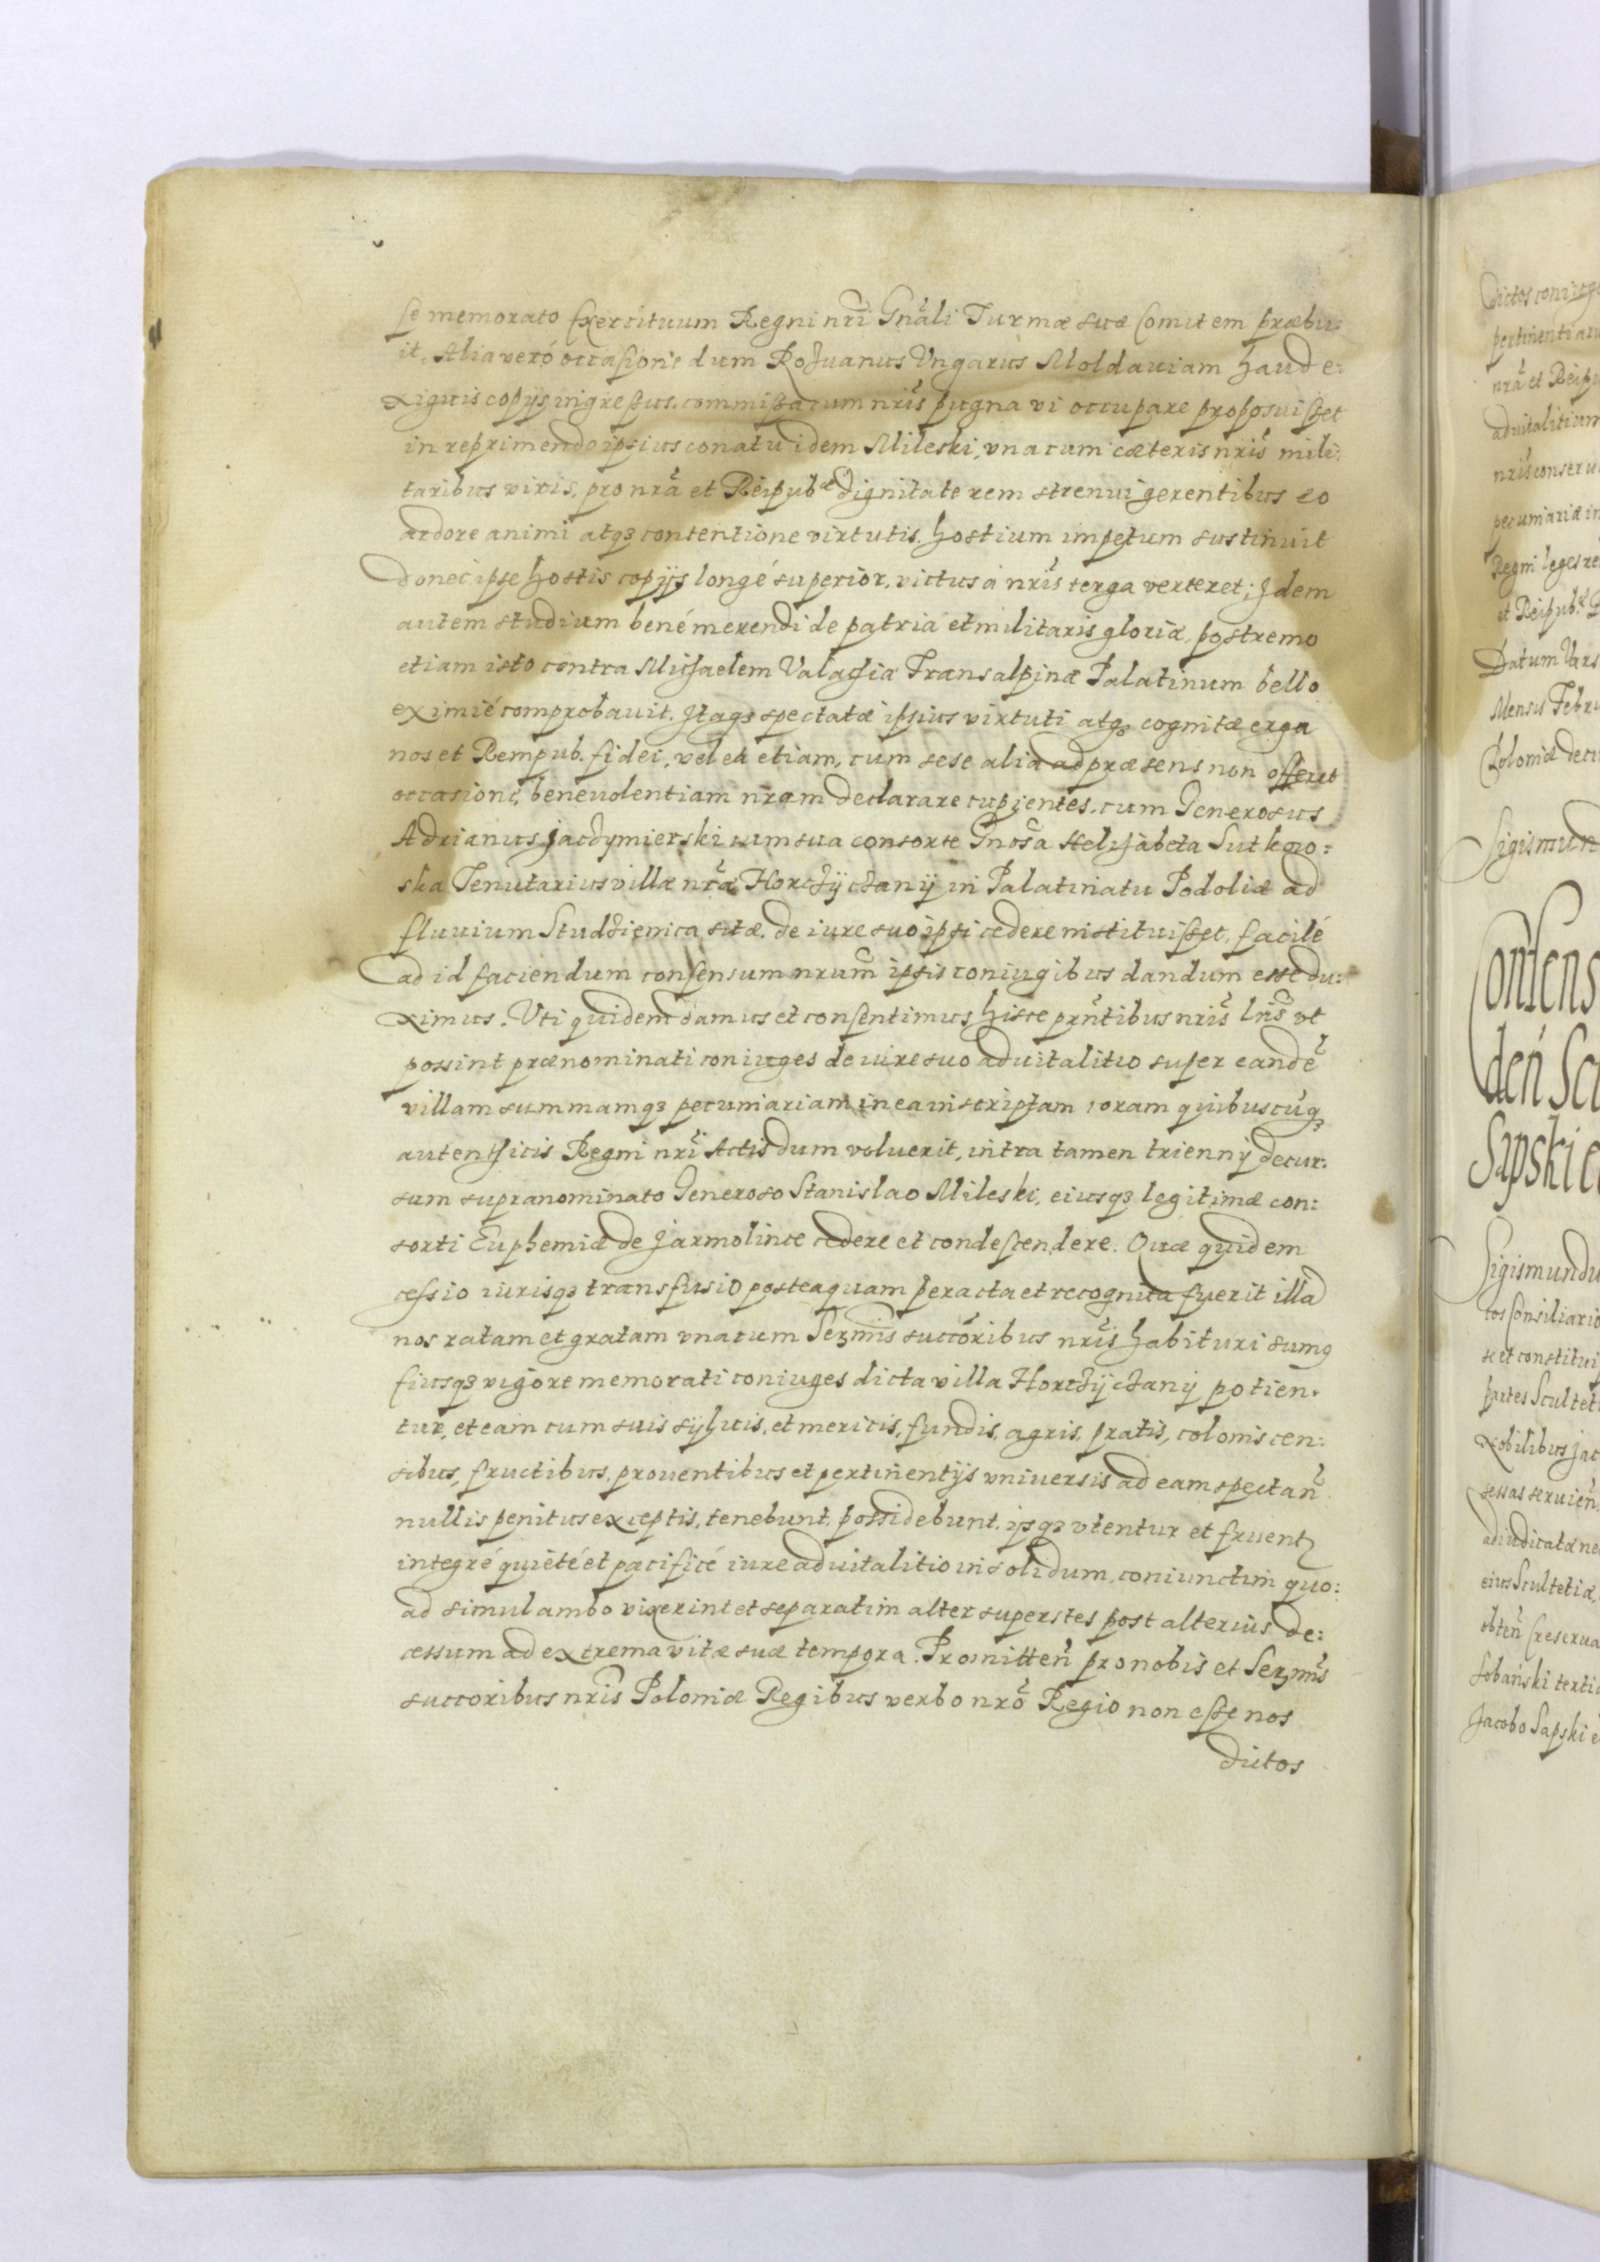 se memorato Exercituum Regni nr̃i Gnãli Turmæ suæ Comitem præbu:
it. Alia veró occasione dum Rozuanus Vngarus Moldauiam haud e:
xiguis copijs ingressus, commissa cum nr̃is pugna vi occupare proposuisset
in reprimendo ipsius conatu idem Mileski, vna cum cæteris nr̃is mili:
taribus viris, pro nr̃a et Reipub.æ dignitate rem strenui gerentibus eo
ardore animi atqз contentione virtutis, hostium impetum sustinuit
donec ipse hostis copijs longé superior, victus à nr̃is terga verteret; Idem
autem studium bené merendi de patria et militaris gloriæ, postremo
etiam isto contra Michaelem Valachiæ Transalpinæ Palatinum bello
eximié comprobauit. Itaqз spectatæ ipsius virtuti atqз cognitæ erga
nos et Rempub. fidei, vel ea etiam, cum sese alia ad præsens non offerret
occasione, benevolentiam nr̃am declarare cupientes, cum Generosus
Adrianus Jacdymierski cum sua consorte Gnõsa Helizabeta Sutkow:
ska Tenutarius villæ nr̃æ Horczyczany in Palatinatu Podoliæ ad
fluuium Studzienica sitæ, de iure suo ipsi cedere instituisset, facilé
ad id faciendum consensum nrum̃ ipsis coniugibus dandum esse du:
ximus. Vti quidem damus et consentimus hisce prñtibus nr̃is lrĩs vt
possint prænominati coniuges de iure suo aduitalitio super eandẽ
villam summamqз pecuniariam in ea inscriptam coram quibuscũqз
autenthicis Regni nr̃i Actis dum voluerit, intra tamen triennij decur:
sum supranominato Generoso Stanislao Mileski, eiusqз legitimæ con:
sorti Euphemiæ de Jarmolince cedere et condescendere. Quæ quidem
cessio iurisqз transfusio posteaquam peracta et recognita fuerit illã
nos ratam et gratam vna cum Serm̃is succõribus nr̃is habituri sumus
Eiusqз vigore memorati coniuges dicta villa Horczyczany potien:
tur, et eam cum suis sylvis, et mericis, fundis, agris, pratis, colonis cen:
sibus, fructibus, prouentibus et pertinentijs vniversis ad eam spectañ
nullis penitus exceptis, tenebunt, possidebunt, ijsqз vtentur et fruentur
integré quieté et pacificé iure aduitalitio in solidum, coniunctim quo:
ad simul ambo vixerint et separatim alter superstes post alterius de:
cessum ad extrema vitæ suæ tempora. Promitteñ pro nobis et Serm̃is
succoribus nr̃is Poloniæ Regibus verbo nr̃o Regio non esse nos
dictos
dictos coniuge
nr̃a et Reipu
Regni leges re
Datum Vars
Mensis Febru
Sigismun
Consens
deñ Scu
Sapski e
Sigismundu
cos Consiliario
se et constitui
partes Scultet
Nobilibus Jac
adiudicatæ ne
eius Scultetiæ,
obteñ Creserua
Sobański tertia
Jacobo Sapski e